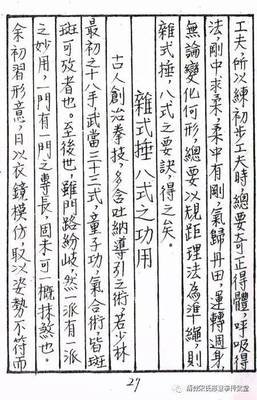 工夫,所以練初步工夫時,總要奇正得體,呼吸得
法,剛中求柔,柔中有剛,氣歸丹田,運轉週身,
無論變化何形,總要以規距理法為準繩,則
雜式捶,八式之要訣,得之矣。
雜式捶八式之功用
古人創治拳技,多含吐納導引之術,若少林
最初之十八手,武當三十三式,童子功,氣合術皆斑
斑可考者也。至後世,雖門路紛岐,然一派有一派
之妙用,一門有一門之專長,固未可一概抹煞也。
余初習形意,日以衣鏡模仿,取以姿勢不符而
27